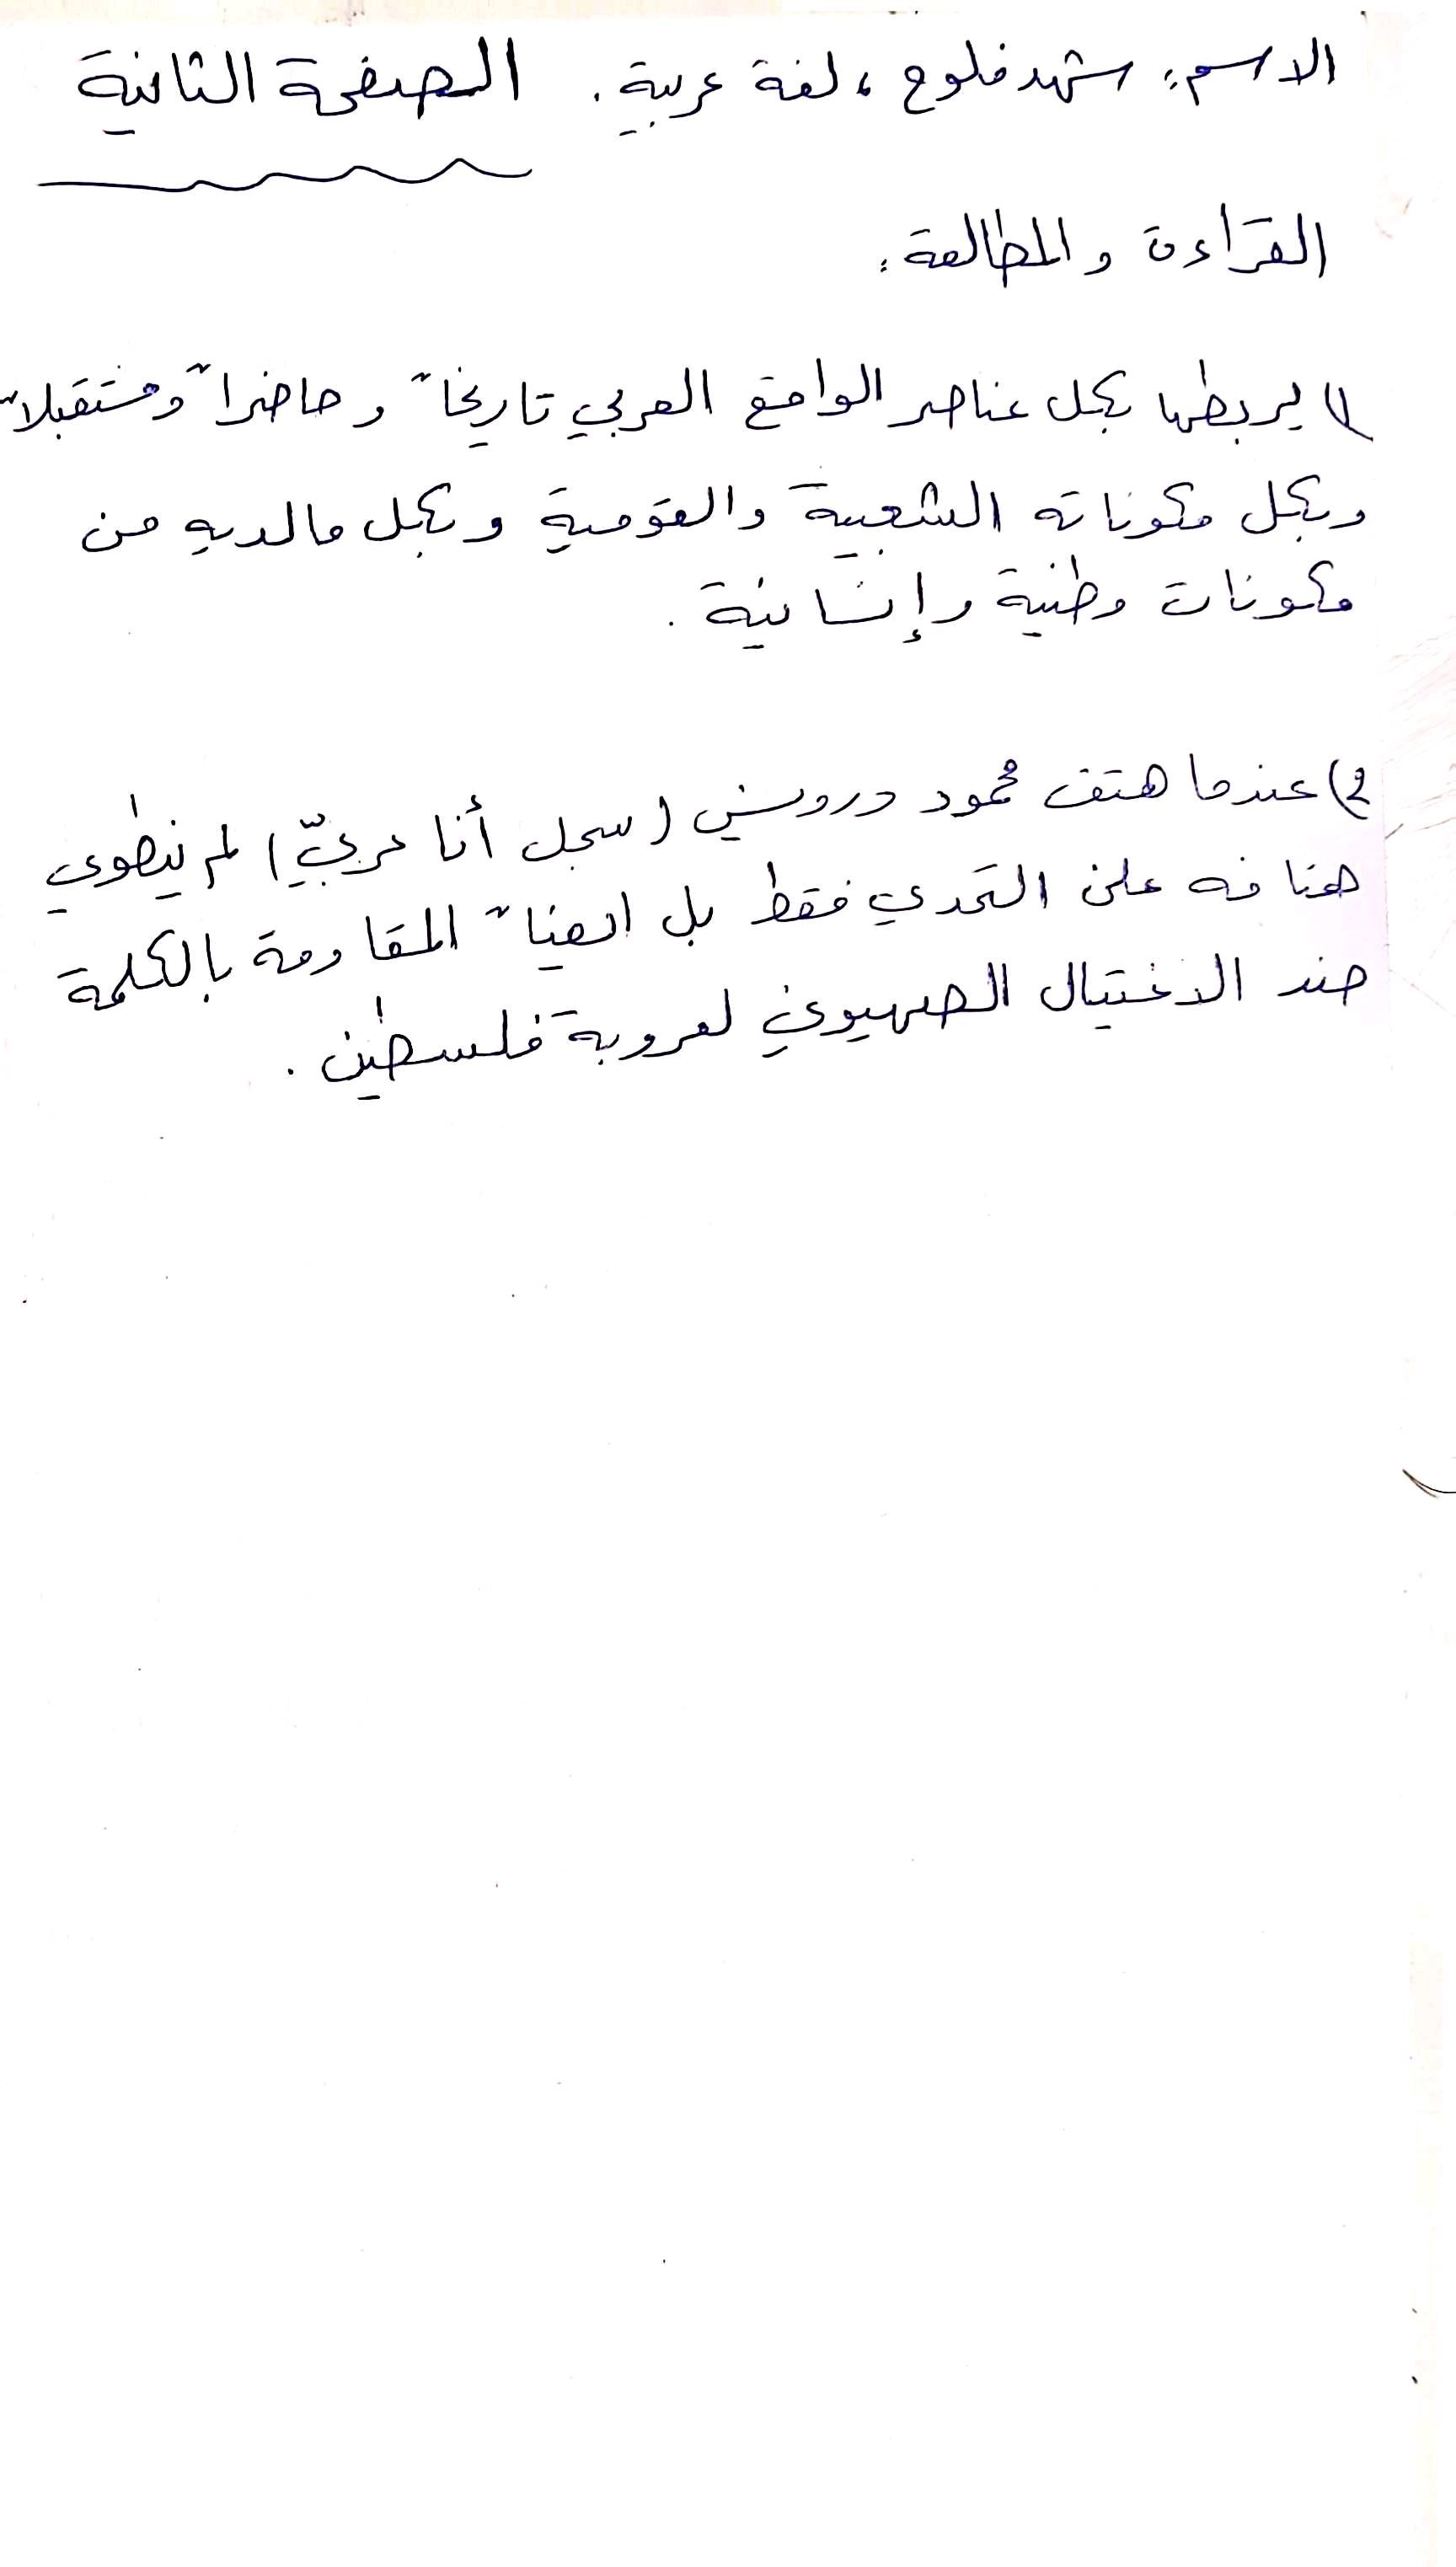 الاسم: شهد فلوح ، لغة عربية . الصفحة الثانية
القراءة والمطالعة :
1) يربطها بكل عناصر الواقع العربي تاريخاً وحاضراً ومستقبلاً
وبكل مكوناته الشعبية والقومية وبكل مالديه من
مكونات وطنية وإنسانية .
2) عندما هتف محمود درويش (سجل أنا عربيّ) لم ينطوي
هتافه على التحدي فقط بل ايضاً المقاومة بالكلمة
ضد الاغتيال الصهيوني لعروبة فلسطين .